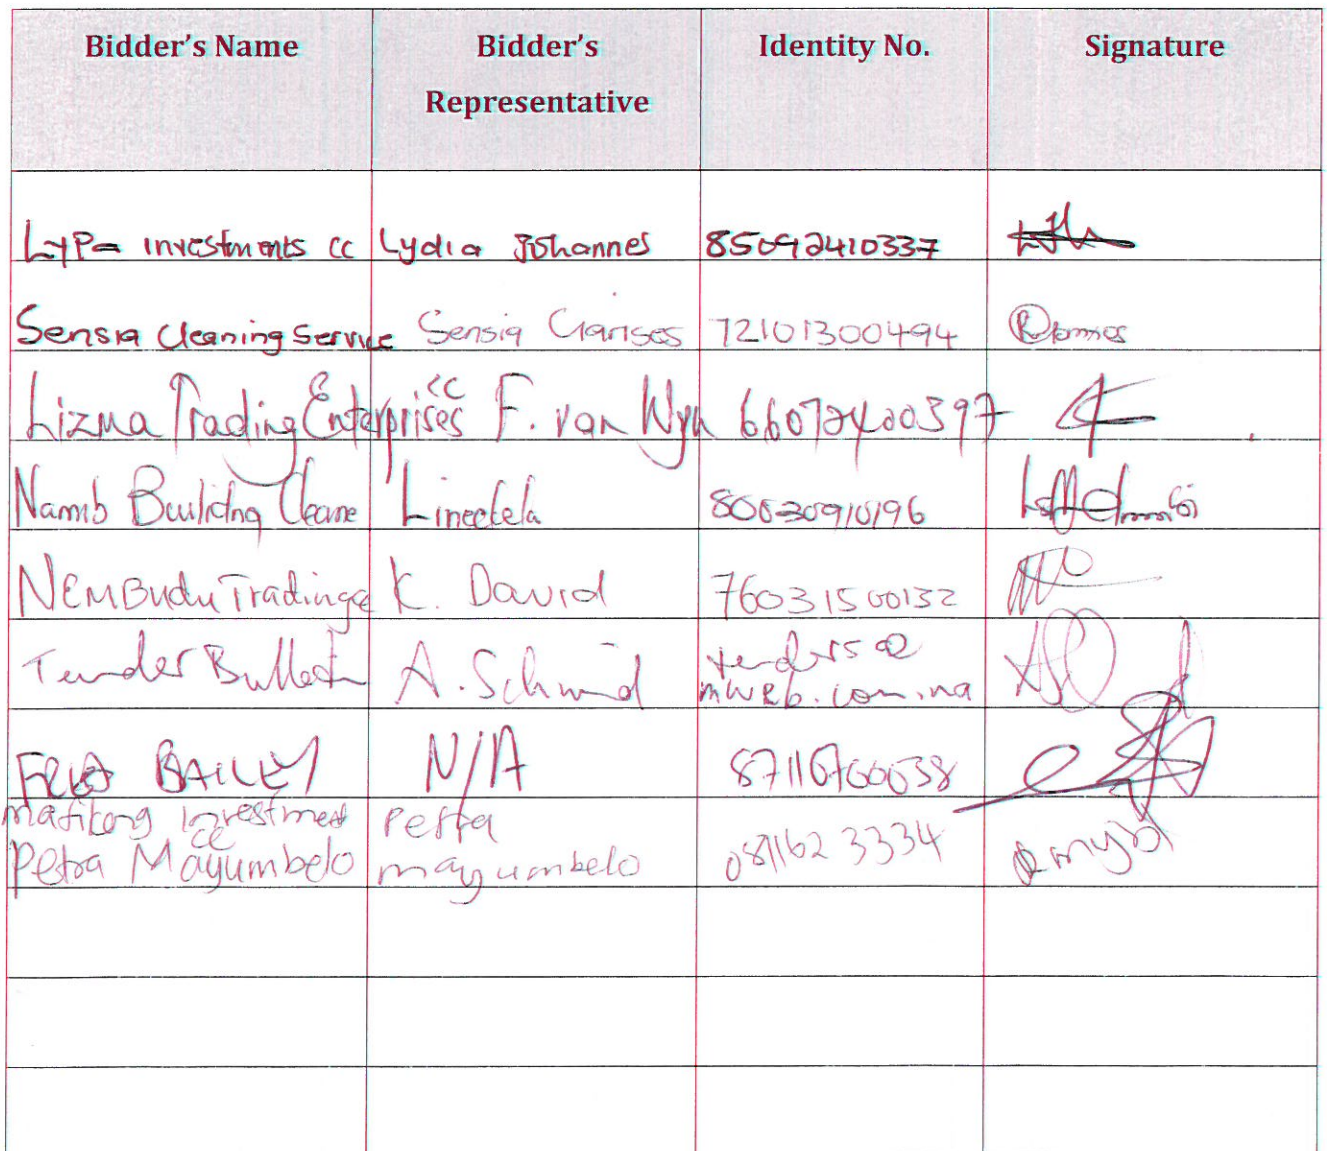 Bidder's Name Bidder's Representative Identity No. Signature
Investments cc Lydia Johannes 85092410337
Sensia Cleaning Service Sensia 72101300494
Lizma Trading Enterprises cc F. van Wyk 66072400397
Namb Building Cleane Lineekela
NEMBudu Trading K. David 76031500132
Tender Bulletin A. Schmid tenders@
mweb.com.na
BAILEY N/A
Investment Petra
Petra Mayumbelo cc mayumbelo 081162 3334